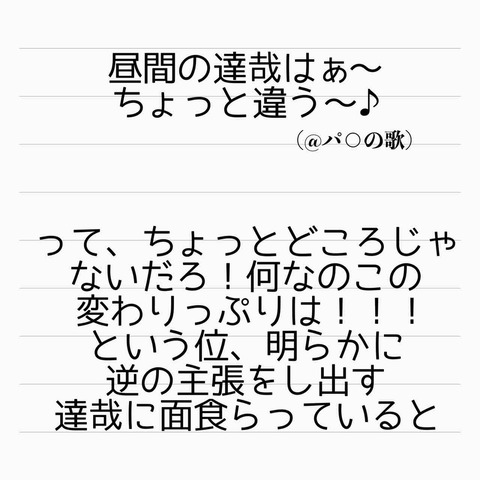 昼間の達哉はぁ〜
ちょっと違う〜♪
（@パ○の歌）
って、ちょっとどころじゃ
ないだろ！何なのこの
変わりっぷりは！！！
という位、明らかに
逆の主張をし出す
達哉に面食らっていると